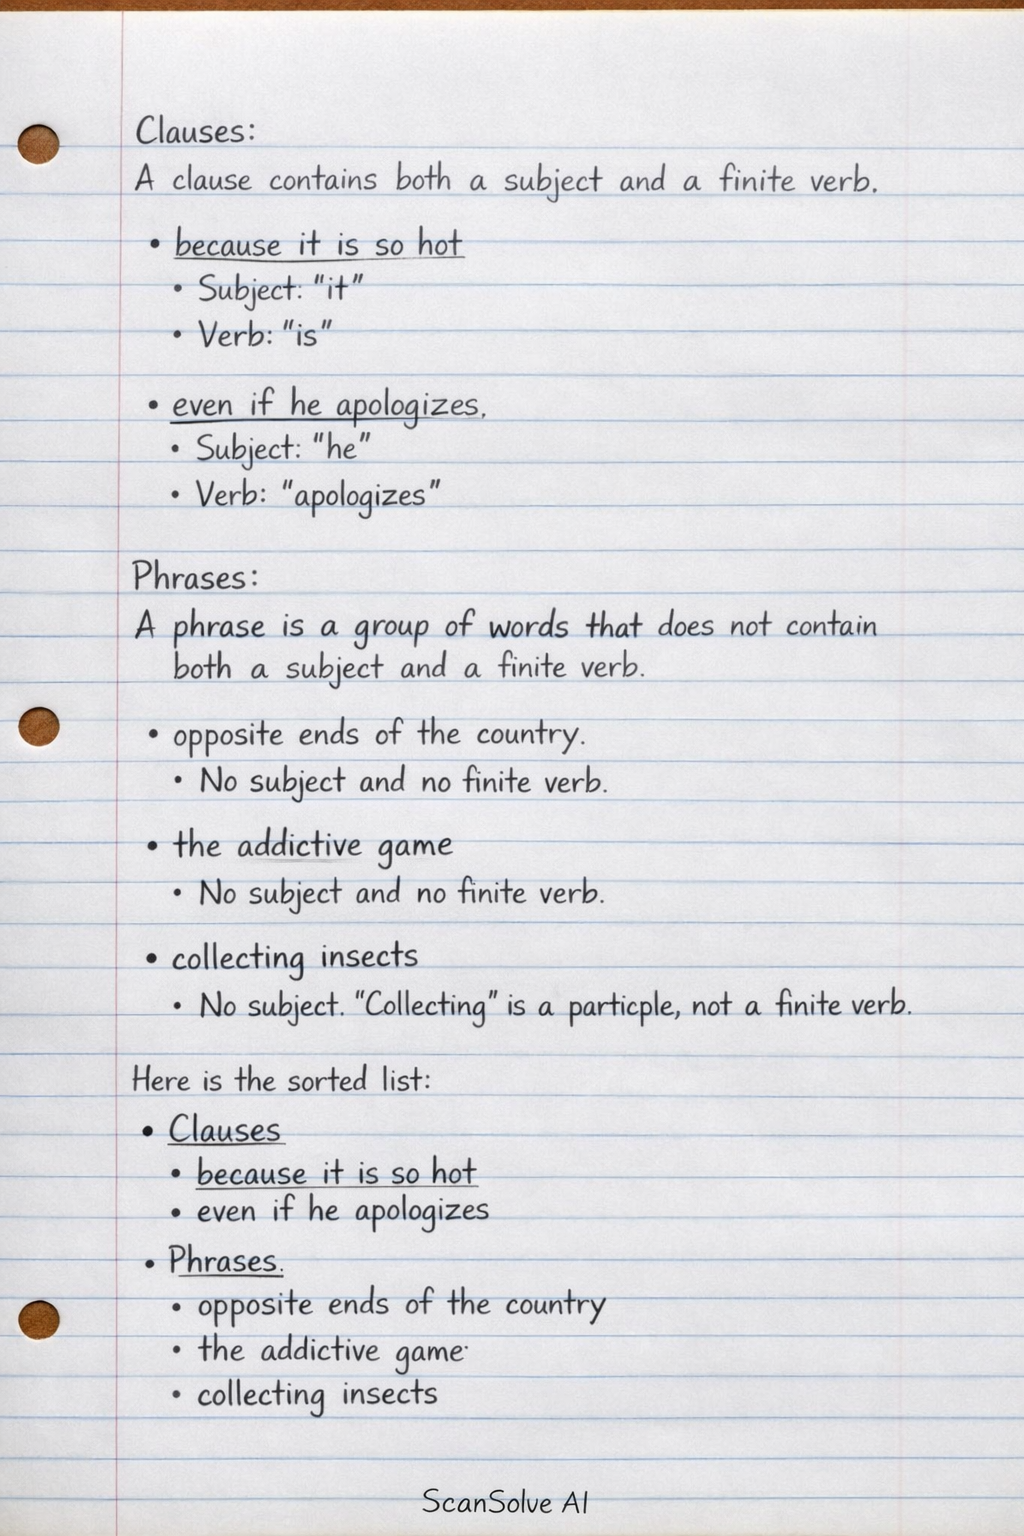 Clauses:
A clause contains both a subject and a finite verb.
• because it is so hot
• Subject: "it"
• Verb: "is"
• even if he apologizes,
• Subject: "he"
• Verb: "apologizes"
Phrases:
A phrase is a group of words that does not contain
both a subject and a finite verb.
• opposite ends of the country.
• No subject and no finite verb.
• the addictive game
• No subject and no finite verb.
• collecting insects
• No subject. "Collecting" is a particple, not a finite verb.
Here is the sorted list:
• Clauses
• because it is so hot
• even if he apologizes
• Phrases.
• opposite ends of the country
• the addictive game
• collecting insects
ScanSolve AI